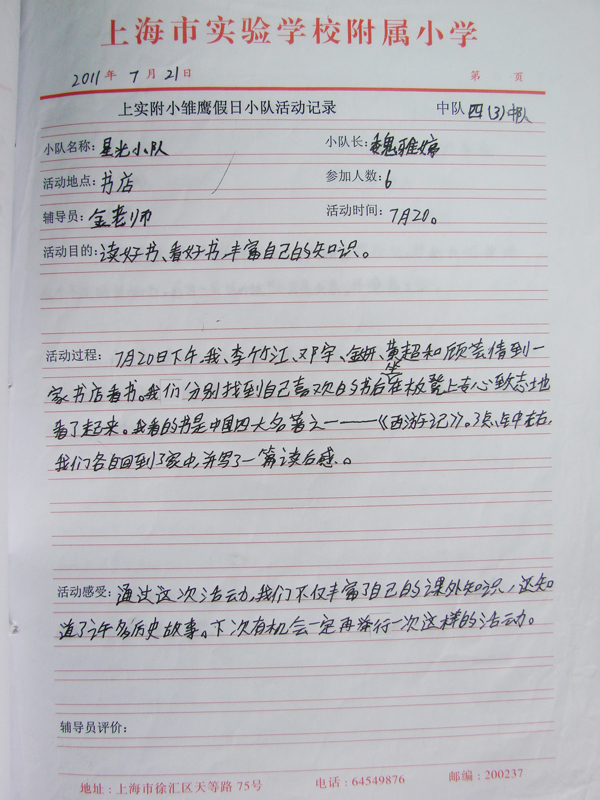 上海市实验学校附属小学
2011年 7月21日 第 页
上实附小雏鹰假日小队活动记录 中队 四(3)中队
小队名称：星光小队 小队长：魏雅婷
活动地点：书店 参加人数：6
辅导员：金老师 活动时间：7月20。
活动目的：读好书、看好书,丰富自己的知识。
活动过程：7月20日下午,我、李竹江、邓宇、金妍、黄超和顾芸倩到一
家书店看书。我们分别找到自己喜欢的书后坐在板凳上专心致志地
看了起来。我看的书是中国四大名著之一———《西游记》。3点,钟左右,
我们各自回到了家中,并写了一篇读后感.。
活动感受：通过这次活动,我们不仅丰富了自己的课外知识,还知
道了许多历史故事。下次有机会一定再举行一次这样的活动。
辅导员评价：
地址：上海市徐汇区天等路 75号 电话：64549876 邮编：200237